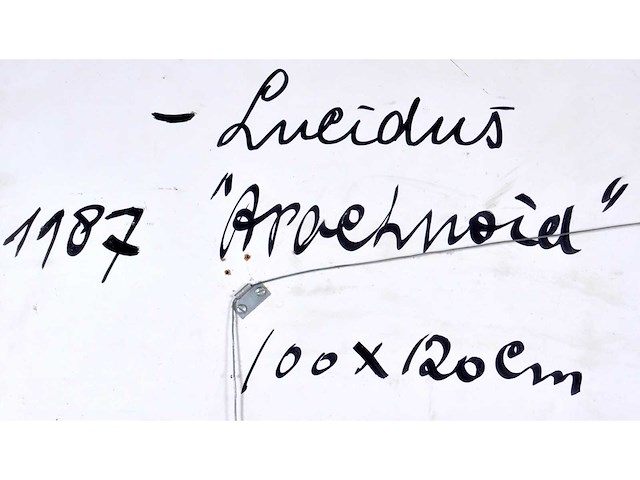 - Lucidus
1987 "Arachnoid"
100 x 120 cm